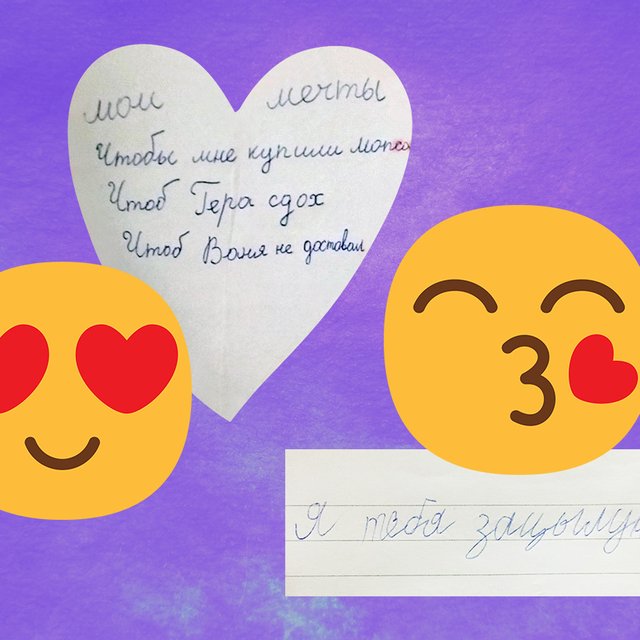 мои мечты
Чтобы мне купили мопса
Чтоб Гера сдох
Чтоб Ваня не доставал
Я тебя зацылую